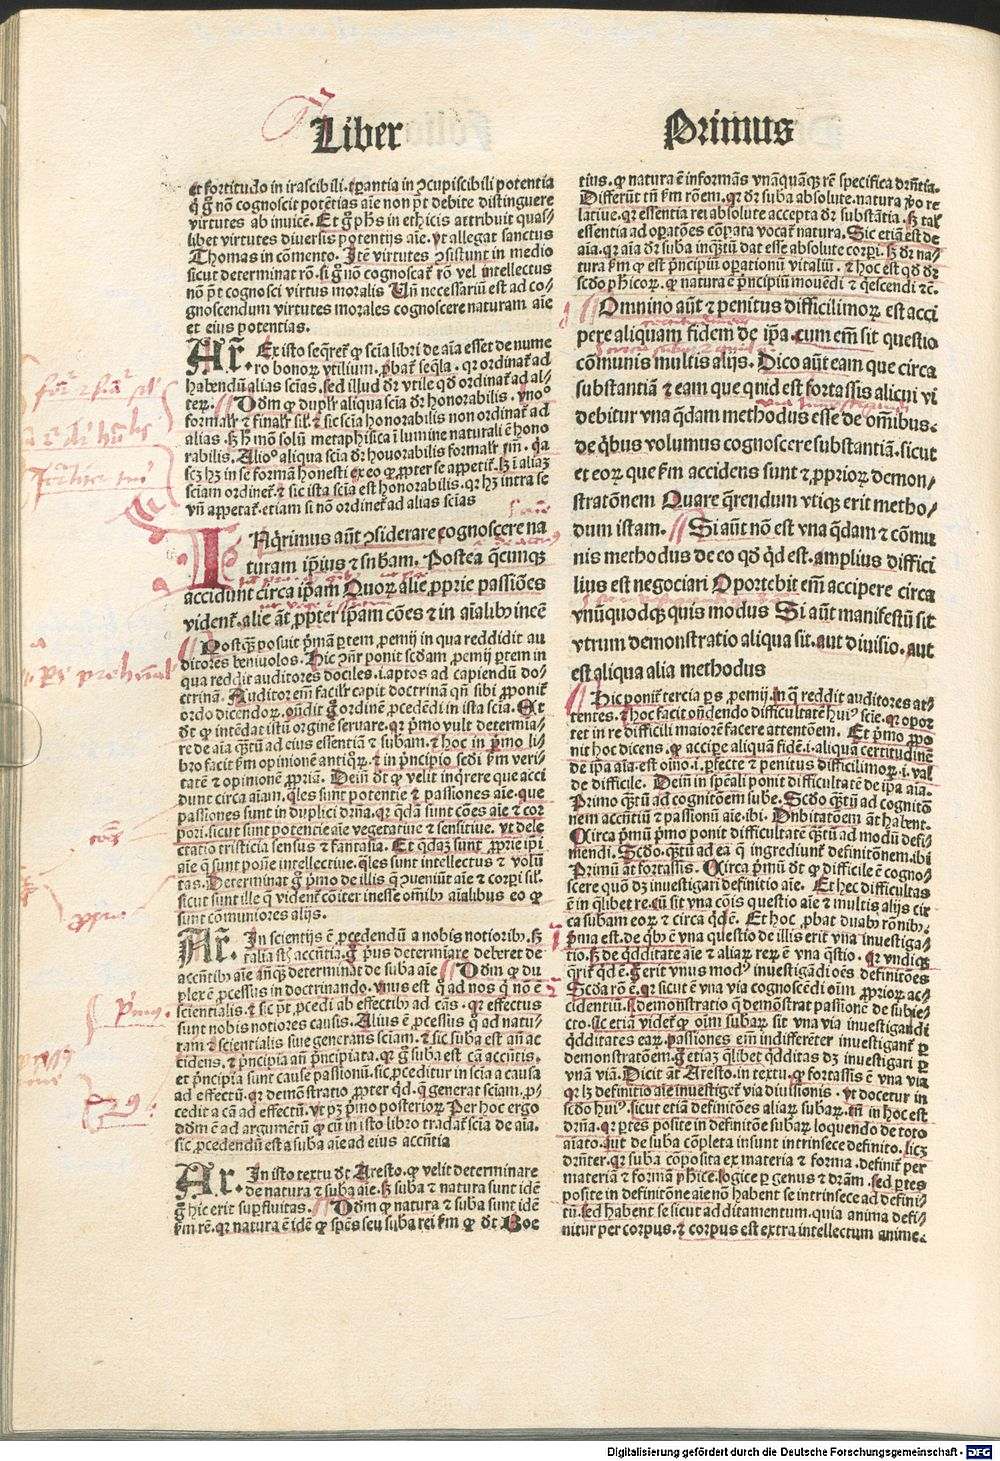 Liber Primus
et fortitudo in irascibili. tꝑantia in ꝯcupiscibili potentia
q̇ g̃ nõ cognoscit potẽtias aĩe non p̃t debite distinguere
virtutes ab inuicẽ. Et g̃ p̃hs in ethicis attribuit quas⸗
libet virtutes diuersis potentijs aĩe. vt allegat sanctus
Thomas in cõmento. Itẽ virtutes ꝯsistunt in medio
sicut determinat rõ. si g̃ nõ cognoscat̃ rõ vel intellectus
nõ p̃t cognosci virtus moralis Uñ necessariũ est ad co⸗
gnoscendum virtutes morales cognoscere naturam aĩe
et eius potentias.
Ar̃. Ex isto seq̃ret̃ ꝙ scĩa libri de aĩa esset de nume
ro bonoꝝ vtilium. ꝓbat̃ seq̃la. qꝛ ordinat̃ ad
habendũ alias scĩas. sed illud dr̃ vtile qd̃ ordinat̃ ad al⸗
teꝝ. Dõm ꝙ duplr̃ aliqua scĩa dr̃ honorabilis. vno°
formalr̃ ⁊ finalr̃ sil̃. ⁊ sic scĩa honorabilis non ordinat̃ ad
alias. sꝫ h̃ mõ solũ metaphisica ĩ lumine naturali ẽ hono
rabilis. Alio° aliqua scĩa dr̃ honorabilis formalr̃ tm̃. q̃a
scꝫ hꝫ in se formam honesti ex eo ꝙ ꝓpter se appetit̃. lꝫ ĩ aliaꝫ
sciam ordinet̃. ⁊ sic ista scĩa est honorabilis. qꝛ hꝫ intra se
vñ appetat̃. etiam si nõ ordinet̃ ad alias scias
INprimus aũt ꝯsiderare cognoscere na
turam ip̃ius ⁊ subam. Postea q̃cunqꝫ
accidunt circa ip̃am Quoꝝ alie ꝓprie passiões
vident̃. alie aũt ꝓpter ip̃am cões ⁊ in aĩalibꝰ inee
Postq̃ꝫ posuit p̃mã ꝑtem ꝓemij in qua reddidit au
ditores beniuolos. Hic ꝯñr ponit scd̃am ꝓemij ꝑtem in
qua reddit auditores dociles. i. aptos ad capiendũ do⸗
ctrinã. Auditor em̃ facilr̃ capit doctrinã qñ sibi ꝓponit̃
ordo dicendoꝝ. oñdit g̃ ordinẽ ꝓcedẽdi in ista scĩa. Et
dt̃ ꝙ intẽdat istũ orginẽ seruare. qꝛ p̃mo vult determia⸗
re de aĩa q̃ꝫtũ ad eius essentiã ⁊ subam. ⁊ hoc in p̃mo li⸗
bro facit k̃m opinionẽ antiq̇ꝝ. ⁊ in p̃ncipio scd̃i k̃m veri⸗
tatẽ ⁊ opinionẽ ꝓpriã. Deiñ dt̃ ꝙ velit inq̃rere que acci
dunt circa aĩam. q̃les sunt potentie ⁊ passiones aĩe. que
passiones sunt in duplici dr̃ña. qꝛ q̃dã sunt cões aĩe ⁊ cor
pori. sicut sunt potentie aĩe vegetatiue ⁊ sensitiue. vt dele
ctatio tristicia sensus ⁊ fantasia. Et q̃daꝫ sunt ꝓprie ip̃i
aĩe q̃ sunt potẽtie intellectiue. q̃les sunt intellectus ⁊ volũ
tas. Determinat g̃ p̃mo de illis q̃ ꝯueniũt aĩe ⁊ corꝑi sil̃.
sicut sunt ille q̃ vident̃ cõiter inesse om̃ibꝰ aĩalibus eo ꝙ
sunt cõmuniores alijs.
Ar̃. In scientijs ẽ ꝓcedendũ a nobis notioribꝰ. sꝫ
talia st̃ accñtia. g̃ p̃us determiare deberet de
accñtibꝰ aĩe añq̃ꝫ determinat de suba aĩe Dõm ꝙ du
plex ẽ ꝓcessus in doctrinando. vnus est q̇ ad nos q̇ nõ ẽ
scientialis. ⁊ sic p̃t ꝓcedi ab effectibꝰ ad cãs. qꝛ effectus
sunt nobis notiores causis. Alius ẽ ꝓcessus q̇ ad natu⸗
ram ⁊ scientialis siue generans sciam. ⁊ sic suba est añ ac
cidens. ⁊ p̃ncipia añ p̃ncipiata. qꝛ g̃ suba est cã accñtis.
et p̃ncipia sunt cause passionũ. sic ꝓceditur in scĩa a causa
ad effectũ. qꝛ demõstratio ꝓpter qd̃. q̃ generat sciam. ꝓ⸗
cedit a cã ad effectũ. vt pꝫ p̃mo posterioꝝ Per hoc ergo
dõm ẽ ad argumẽtũ ꝙ cũ in isto libro tradat̃ scĩa de aĩa.
sic ꝓcedendũ est a suba aĩe ad eius accñtia
Ar̃. In isto textu dt̃ Aresto. ꝙ velit determinare
de natura ⁊ suba aĩe. sꝫ suba ⁊ natura sunt idẽ
g̃ hic erit suꝑfluitas. Dõm ꝙ natura ⁊ suba sunt idẽ
k̃m rẽ. qꝛ natura ẽ idẽ ꝙ sp̃es seu suba rei k̃m ꝙ dt̃ Boe
tius. ꝙ natura ẽ informãs vnãquãqꝫ rẽ specifica dr̃ñtia.
Differũt tñ k̃m rõem. qꝛ dr̃ suba absolute. natura ꝟo re
latiue. qꝛ essentia rei absolute accepta dr̃ substãtia. sꝫ tal̃
essentia ad oꝑatões cõꝑata vocat̃ natura. Sic etiã est de
aĩa. qꝛ aĩa dr̃ suba inq̃ꝫtũ dat esse absolute corꝑi. sꝫ dr̃ na⸗
tura k̃m ꝙ est p̃ncipiũ oꝑationũ vitaliũ. ⁊ hoc est qd̃ dr̃
scd̃o phicoꝝ. ꝙ natura ẽ p̃ncipiũ mouẽdi ⁊ q̇escendi ⁊c̃.
Omnino aũt ⁊ penitus difficilimoꝝ est acci
pere aliquam fidem de ip̃a. cum em̃ sit questio
cõmunis multis alijs. Dico aũt eam que circa
substantiã ⁊ eam que quid est fortassis alicui vi
debitur vna q̃dam methodus esse de om̃ibus.
de q̇bus volumus cognoscere substantiã. sicut
et eoꝝ que k̃m accidens sunt ⁊ ꝓprioꝝ demon⸗
stratõnem Quare q̃rendum vtiqꝫ erit metho⸗
dum istam. Si aũt nõ est vna q̃dam ⁊ cõmu
nis methodus de eo qd̃ q̇d est. amplius diffici
lius est negociari Oportebit em̃ accipere circa
vnũquodqꝫ quis modus Si aũt manifestũ sit
vtrum demonstratio aliqua sit. aut diuisio. aut
est aliqua alia methodus
Hic ponit̃ tercia ꝑs ꝓemij. in q̃ reddit auditores at⸗
tentos. ⁊ hoc facit oñdendo difficultatẽ hui° scĩe. qꝛ opor
tet in re difficili maiorẽ facere attentõem. Et p̃mo ꝓpo
nit hoc dicens. ꝙ accipe aliquam fidẽ. i. aliqua certitudinẽ
de ip̃a aĩa. est oĩno. i. ꝑfecte ⁊ penitus difficilimoꝝ. i. val
de difficile. Deiñ in sp̃eali ponit difficultatẽ de ip̃a aĩa.
Primo q̃ꝫtũ ad cognitõem sube. Scd̃o q̃ꝫtũ ad cognitõ
nem accñtiũ ⁊ passionũ aĩe. ibi. Dubitatõem aũt habent.
Circa p̃mũ p̃mo ponit difficultatẽ q̃ꝫtũ ad modũ defi⸗
niendi. Scd̃o. q̃ꝫtũ ad ea q̃ ingrediunt̃ definitõnem. ibi
Primũ aũt fortassis. Circa p̃mũ dt̃ ꝙ difficile ẽ cogno⸗
scere quõ dꝫ inuestigari definitio aĩe. Et hec difficultas
ẽ in q̃libet re. cũ sit vna cõis questio aĩe ⁊ multis alijs cir
ca subam eoꝝ ⁊ circa q̇d ẽ. Et hoc ꝓbat duabꝰ rõnibꝰ.
p̃ma est. de q̇bꝰ ẽ vna questio de illis erit vna inuestiga⸗
tio. sꝫ de q̇dditate aĩe ⁊ aliaꝝ reꝝ ẽ vna q̃stio. qꝛ vndiqꝫ
q̃rit̃ q̇d ẽ. g̃ erit vnus mod° inuestigãdi oẽs definitões
Scd̃a rõ ẽ. qꝛ sicut ẽ vna via cognoscẽdi oĩm ꝓprioꝝ ac⸗
cidentiũ. s. demonstratio q̃ demõstrat passionẽ de subie⸗
cto. sic etiã videt̃ ꝙ oĩm subaꝝ sit vna via inuestigandi
q̇dditates eaꝝ. passiones em̃ indifferẽter inuestigant̃ ꝑ
demonstratõem. g̃ etiaꝫ q̃libet q̇dditas dꝫ inuestigari ꝑ
vnã viã. Dicit aũt Aresto. in textu. ꝙ fortassis ẽ vna via
qꝛ lꝫ definitio aĩe inuestiget̃ via diuisionis. vt docetur in
scd̃o hui°. sicut etiã definitões aliaꝝ subaꝝ. tñ in hoc est
dr̃ña. qꝛ ꝑtes posite in definitõe subaꝝ loquendo de toto
aĩato. aut de suba cõpleta insunt intrinsece definito. licꝫ
dr̃nter. qꝛ suba cõposita ex materia ⁊ forma. definit̃ per
materiã ⁊ formã phice. logice ꝑ genus ⁊ dr̃am. sed ꝑtes
posite in definitõne aĩe nõ habent se intrinsece ad defini⸗
tũ. sed habent se sicut additamentum. quia anima defi⸗
nitur per corpus. ⁊ corpus est extra intellectum anime.
Digitalisierung gefördert durch die Deutsche Forschungsgemeinschaft - DFG